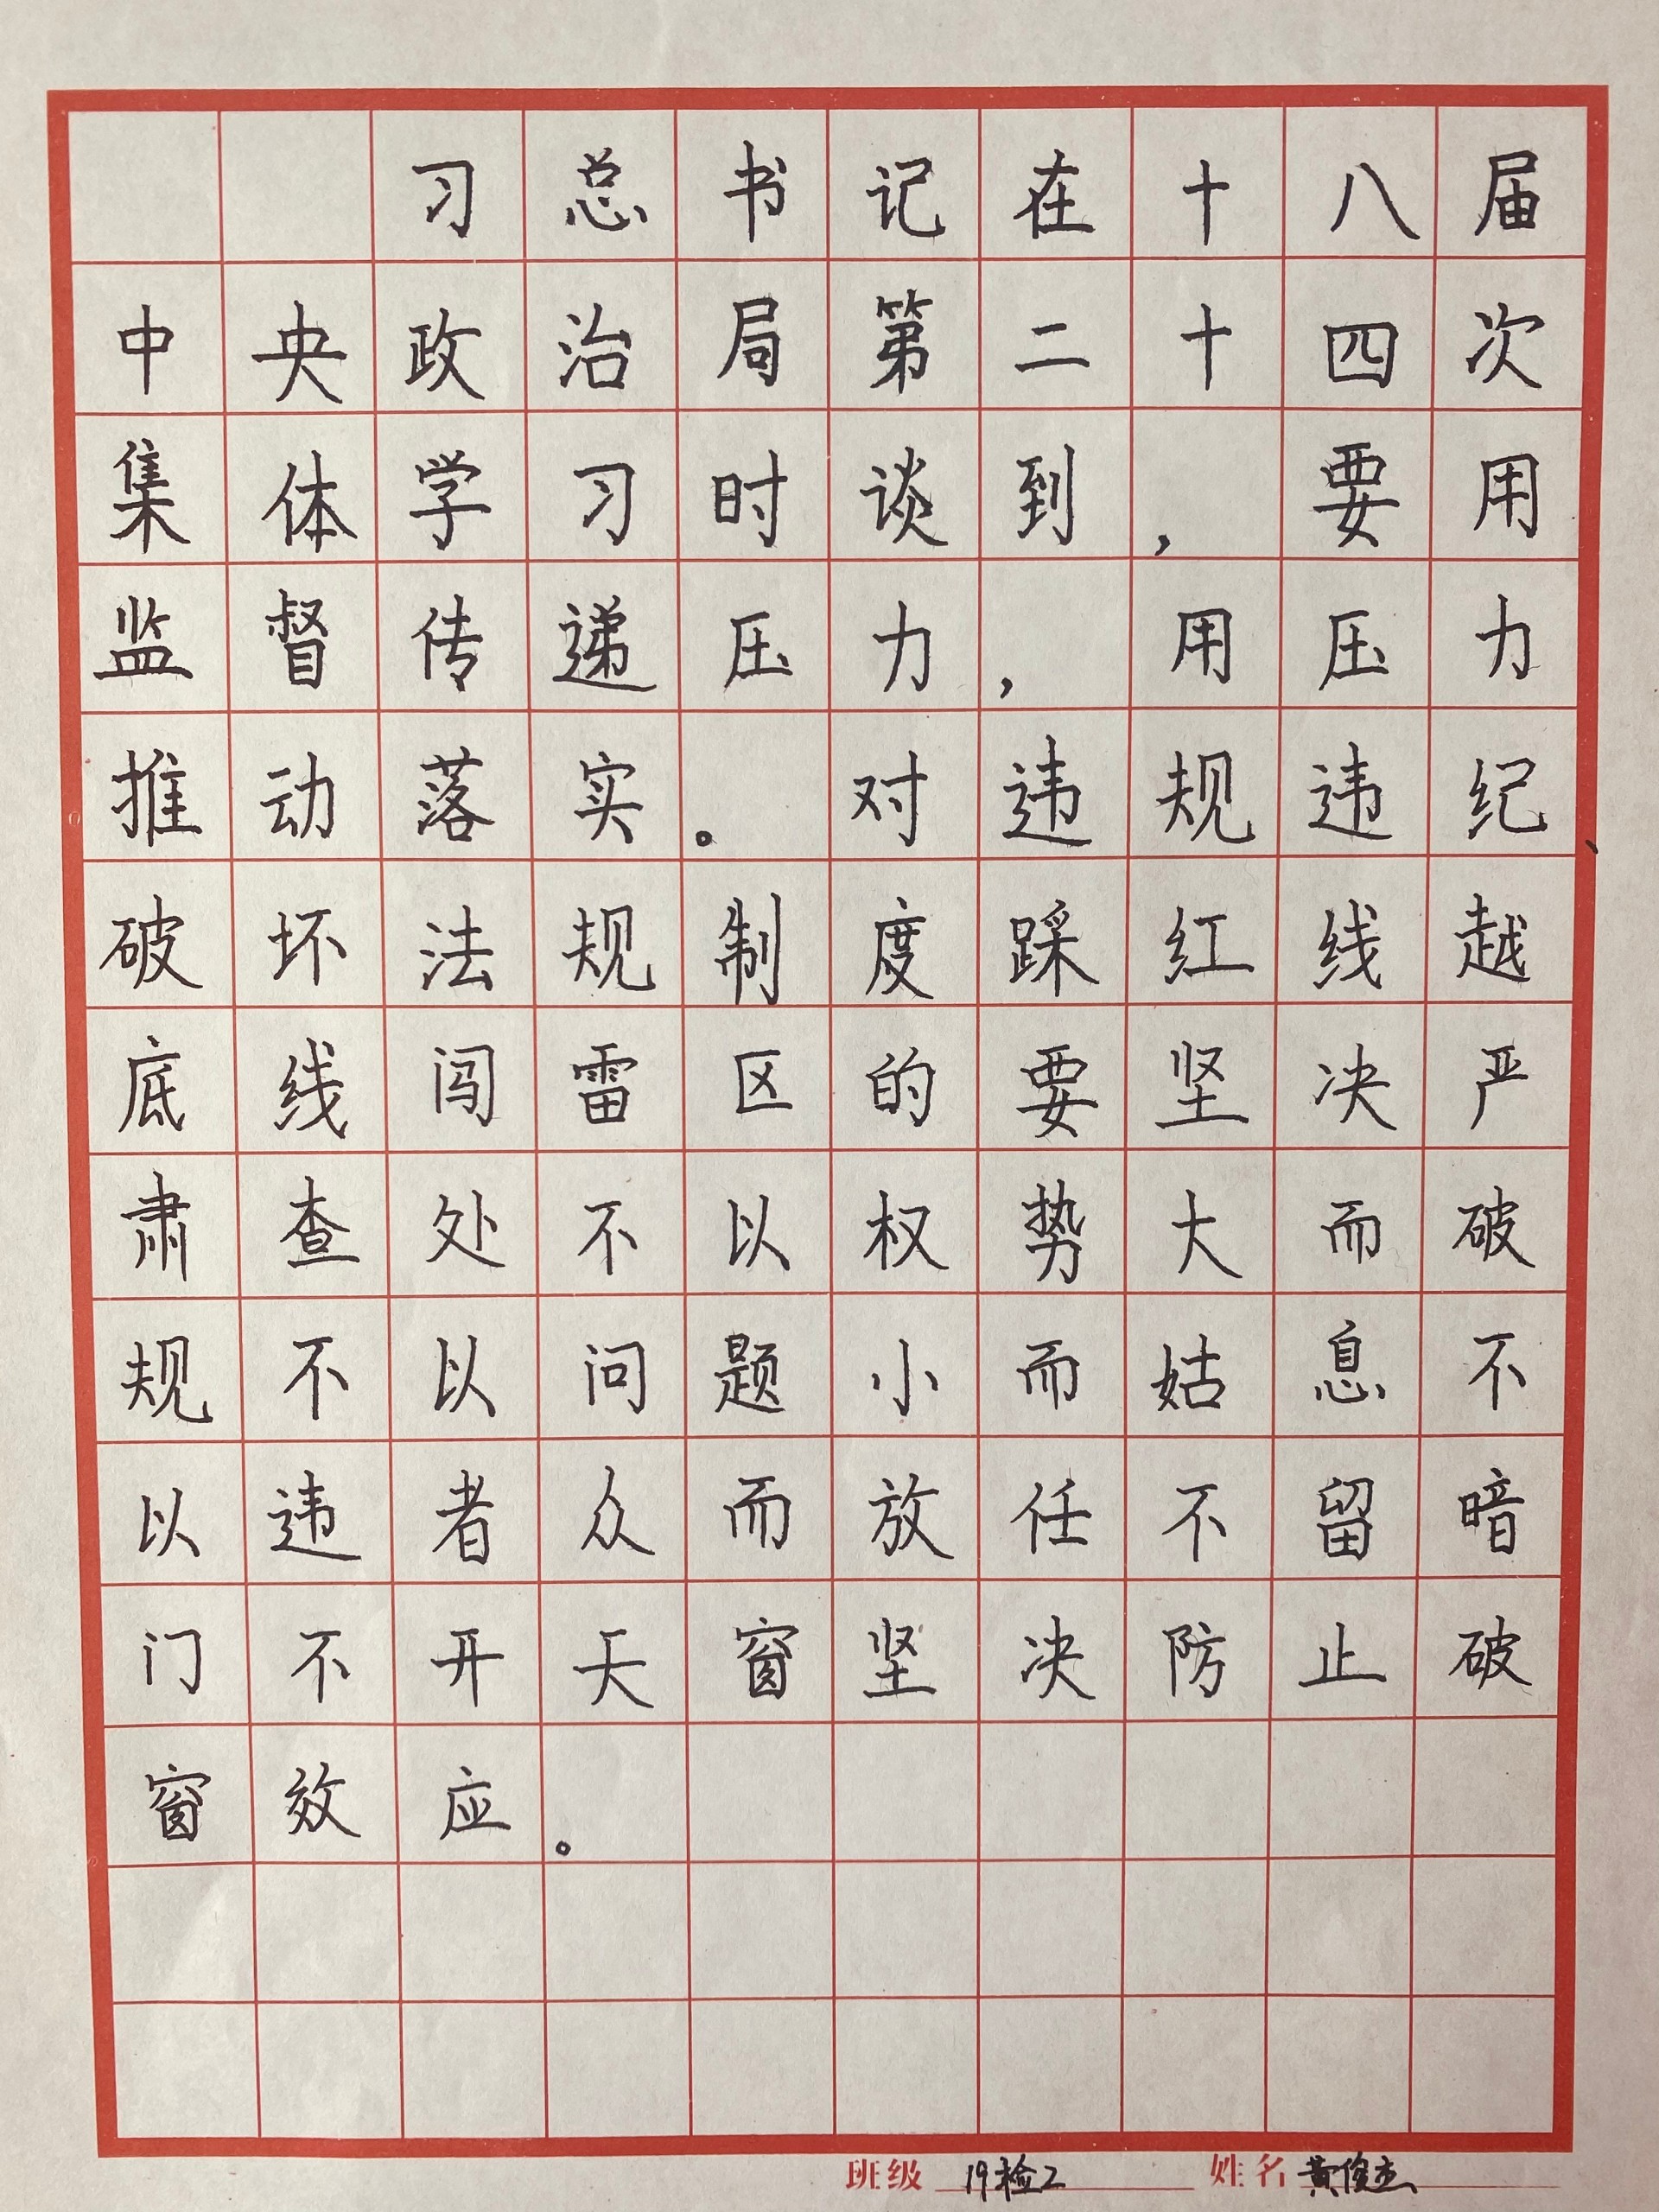 习总书记在十八届
中央政治局第二十四次
集体学习时谈到，要用
监督传递压力，用压力
推动落实。对违规违纪、
破坏法规制度踩红线越
底线闯雷区的要坚决严
肃查处不以权势大而破
规不以问题小而姑息不
以违者众而放任不留暗
门不开天窗坚决防止破
窗效应。
班级 19检2 姓名 黄俊杰